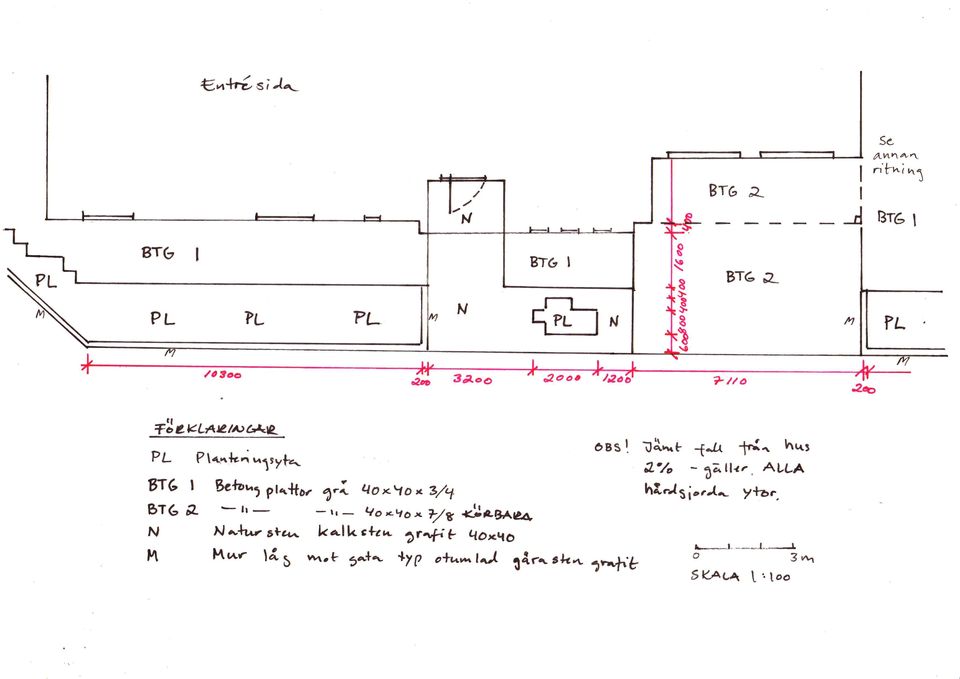 Entrésida
Se
annan
ritning
BTG 2
N
BTG 1
BTG 1
BTG 1
BTG 2
PL
M
PL
PL
PL
M
N
PL
N
M
PL
M
M
400
1600
400
400
800
600
10300
200
3200
2000
1200
7110
200
FÖRKLARINGAR
PL Planteringsyta
BTG 1 Betongplattor grå 40x40x3/4
BTG 2 —"— —"— 40x40x7/8 KÖRBARA
N Natursten kalksten grafit 40x40
M Mur låg mot gata typ otumlad gårasten grafit
OBS! Jämt fall från hus
2% - gäller ALLA
hårdgjorda ytor.
0 3m
SKALA 1:100